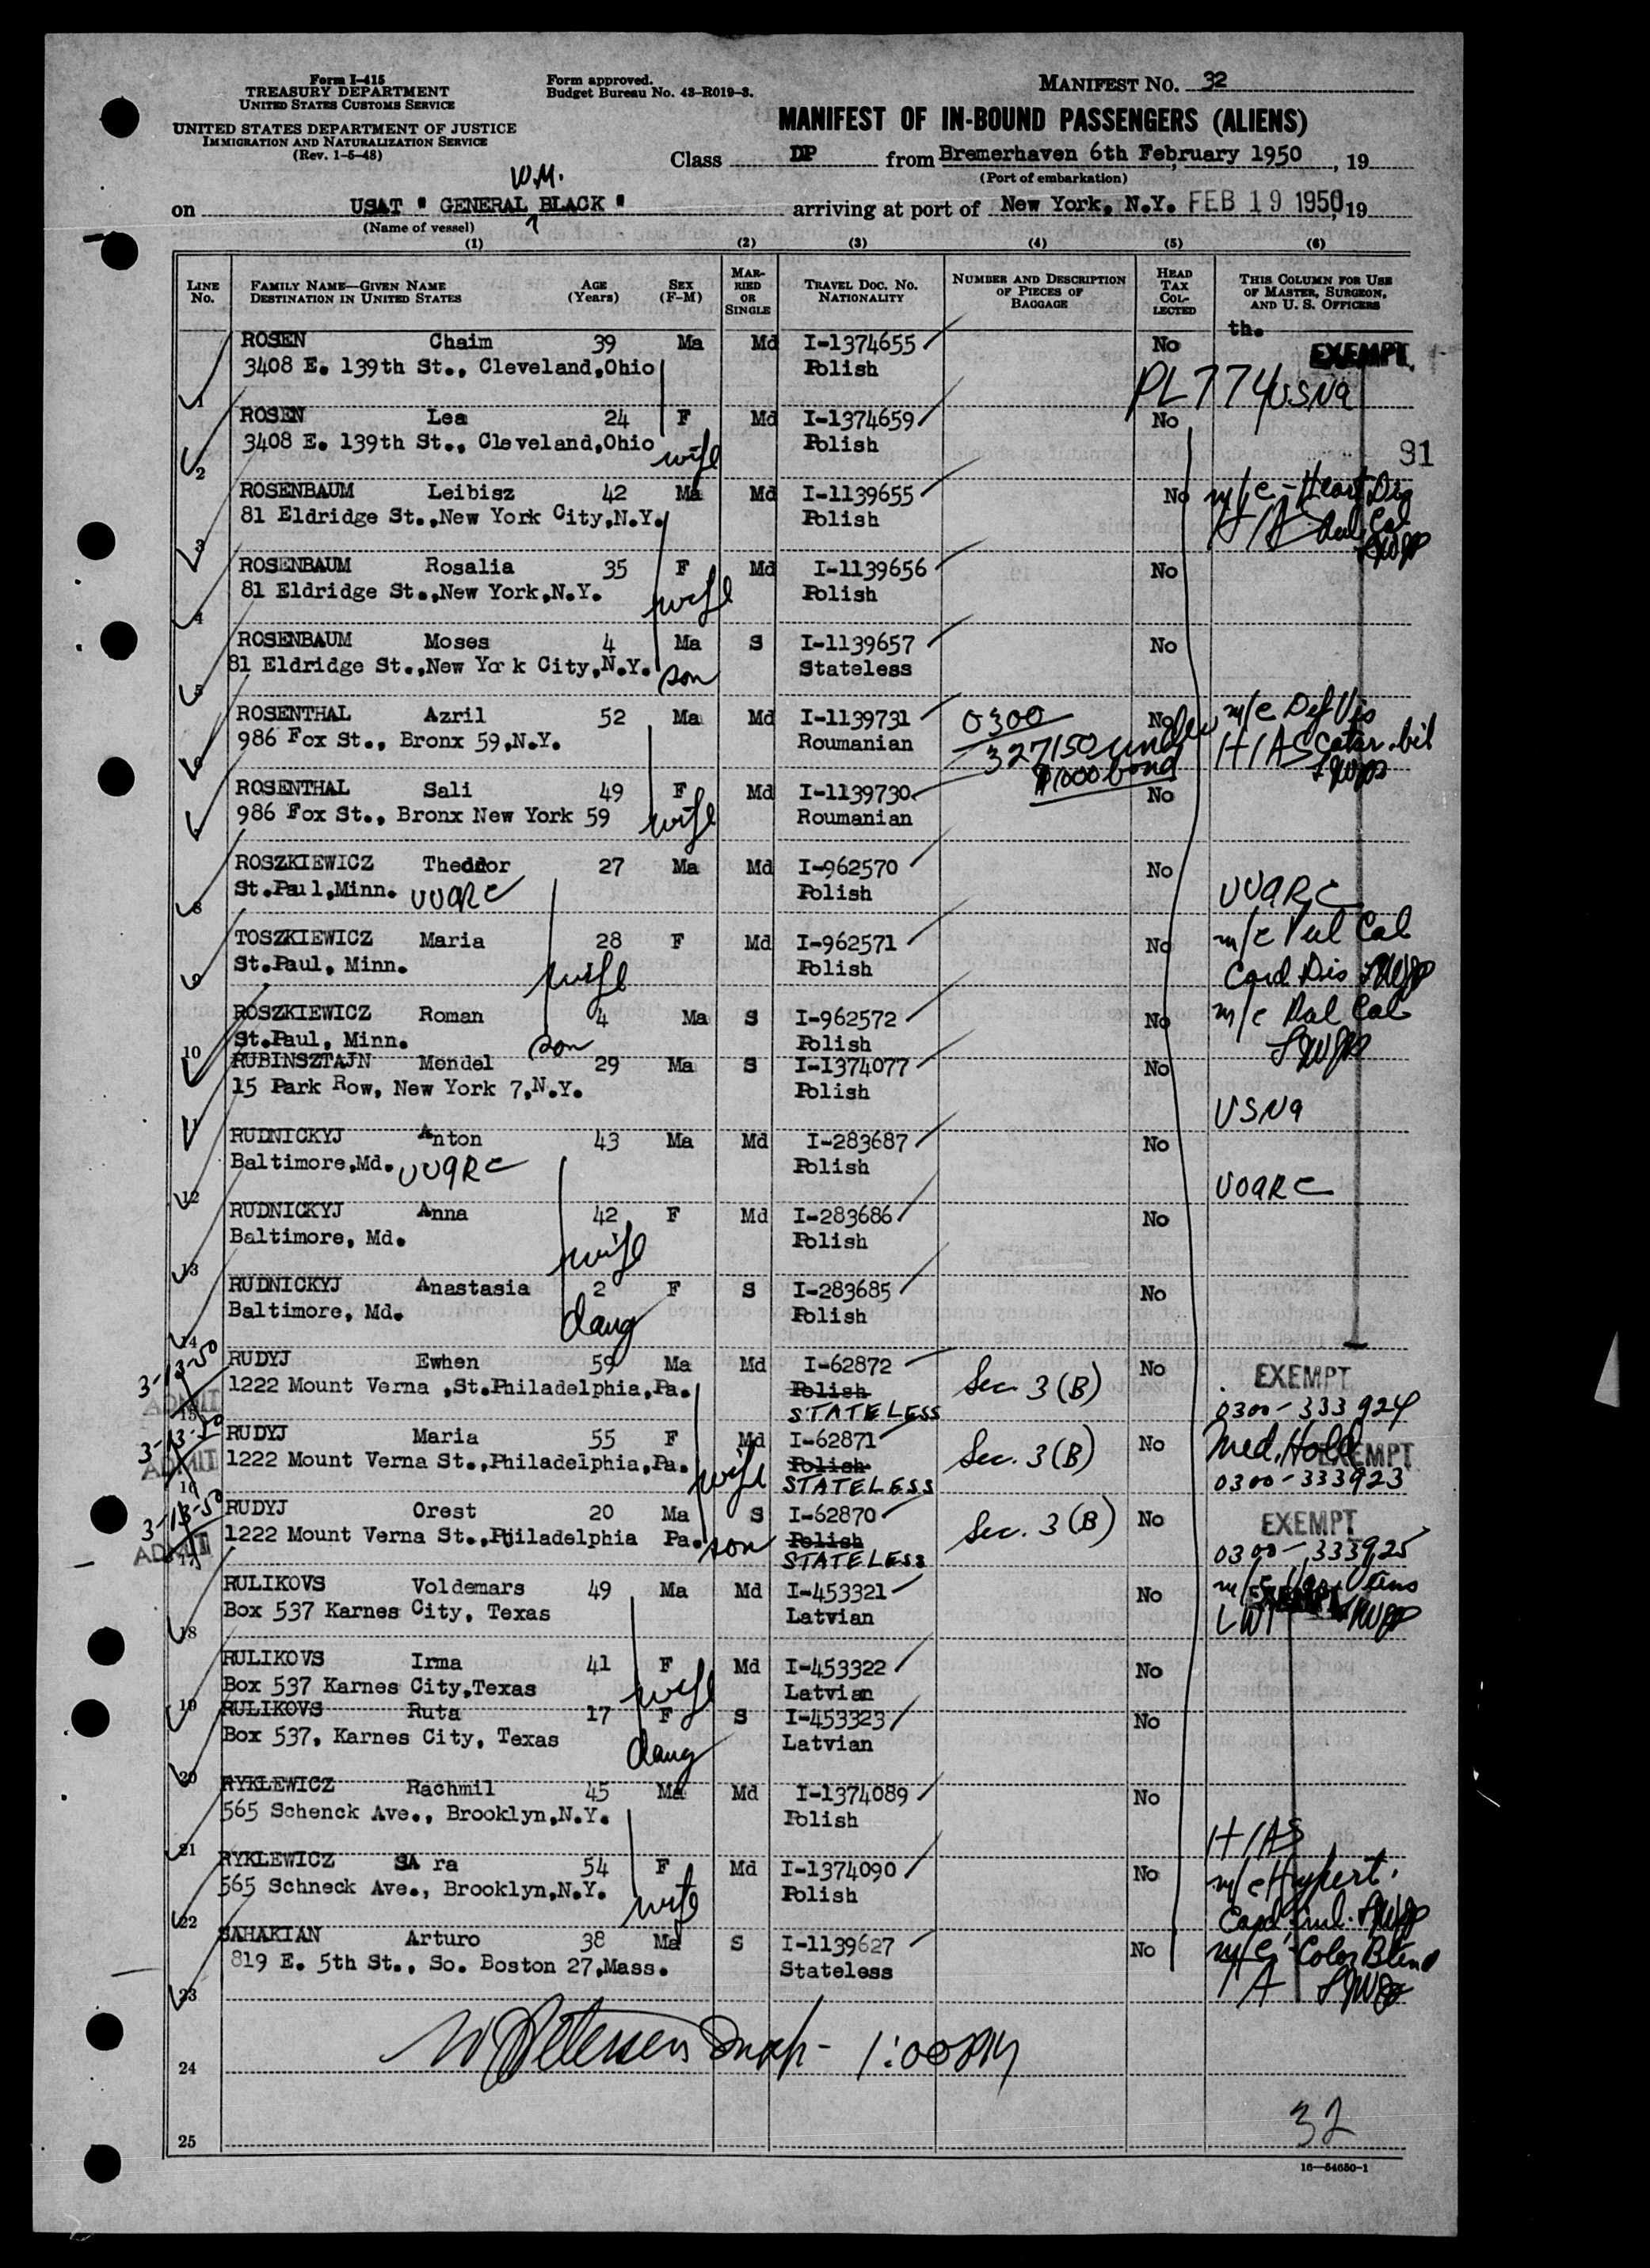 Form I-415
TREASURY DEPARTMENT
UNITED STATES CUSTOMS SERVICE
UNITED STATES DEPARTMENT OF JUSTICE
IMMIGRATION AND NATURALIZATION SERVICE
(Rev. 1-5-48)
Form approved.
Budget Bureau No. 43-R019-3.
MANIFEST NO. 32
MANIFEST OF IN-BOUND PASSENGERS (ALIENS)
Class DP from Bremerhaven 6th February 1950, 19
(Port of embarkation)
W.M.
on USAT " GENERAL BLACK " arriving at port of New York, N.Y. FEB 19 1950, 19
(Name of vessel)
(1) (2) (3) (4) (5) (6)
LINE No. FAMILY NAME—GIVEN NAME DESTINATION IN UNITED STATES AGE (Years) SEX (F-M) MARRIED OR SINGLE TRAVEL DOC. NO. NATIONALITY NUMBER AND DESCRIPTION OF PIECES OF BAGGAGE HEAD TAX COLLECTED THIS COLUMN FOR USE OF MASTER, SURGEON, AND U. S. OFFICERS
th.
ROSEN Chaim 39 Ma Md I-1374655 No EXEMPT
3408 E. 139th St., Cleveland,Ohio Polish PL 774 USNA
1
ROSEN Lea 24 F Md I-1374659 No
3408 E. 139th St., Cleveland,Ohio wife Polish 31
2
ROSENBAUM Leibisz 42 Ma Md I-1139655 No m/c - Heart Dis
81 Eldridge St.,New York City,N.Y. Polish
3
ROSENBAUM Rosalia 35 F Md I-1139656 No
81 Eldridge St.,New York,N.Y. wife Polish
4
ROSENBAUM Moses 4 Ma S I-1139657 No
81 Eldridge St.,New Yor k City,N.Y. son Stateless
5
ROSENTHAL Azril 52 Ma Md I-1139731 0300 No m/c Def Vis
986 Fox St., Bronx 59,N.Y. Roumanian 327150 under HIAS Catar. bil
6 $1000 bond
ROSENTHAL Sali 49 F Md I-1139730 No
986 Fox St., Bronx New York 59 wife Roumanian
7
ROSZKIEWICZ Theddor 27 Ma Md I-962570 No
St.Paul,Minn. UUARC Polish UUARC
8
TOSZKIEWICZ Maria 28 F Md I-962571 No m/c Pul Cal
St.Paul, Minn. wife Polish Card Dis
9
ROSZKIEWICZ Roman 4 Ma S I-962572 No m/c Pul Cal
St.Paul, Minn. son Polish
10
RUBINSZTAJN Mendel 29 Ma S I-1374077 No
15 Park Row, New York 7,N.Y. Polish
11 USNA
RUDNICKYJ Anton 43 Ma Md I-283687 No
Baltimore,Md. UUARC Polish
12 UUARC
RUDNICKYJ Anna 42 F Md I-283686 No
Baltimore, Md. wife Polish
13
RUDNICKYJ Anastasia 2 F S I-283685 No
Baltimore, Md. daug Polish
14
3-13-50 RUDYJ Ewhen 59 Ma Md I-62872 Sec. 3 (B) No EXEMPT
ADMIT 1222 Mount Verna ,St.Philadelphia,Pa. Polish
15 STATELESS 0300-333924
3-13-50 RUDYJ Maria 55 F Md I-62871 Sec. 3 (B) No Med. Hold EXEMPT
ADMIT 1222 Mount Verna St.,Philadelphia,Pa. wife Polish
16 STATELESS 0300-333923
3-13-50 RUDYJ Orest 20 Ma S I-62870 Sec. 3 (B) No EXEMPT
ADMIT 1222 Mount Verna St.,Philadelphia Pa. son Polish
17 STATELESS 0300-333925
RULIKOVS Voldemars 49 Ma Md I-453321 No m/c Var. Veins
Box 537 Karnes City, Texas Latvian EXEMPT
18
RULIKOVS Irma 41 F Md I-453322 No
Box 537 Karnes City,Texas wife Latvian
19
RULIKOVS Ruta 17 F S I-453323 No
Box 537, Karnes City, Texas daug Latvian
20
RYKLEWICZ Rachmil 45 Ma Md I-1374089 No
565 Schenck Ave., Brooklyn,N.Y. Polish
21 HIAS
RYKLEWICZ SA ra 54 F Md I-1374090 No m/c Hypert.
565 Schneck Ave., Brooklyn,N.Y. wife Polish
22
SAHAKIAN Arturo 38 Ma S I-1139627 No m/c Color Blind
819 E. 5th St., So. Boston 27,Mass. Stateless
23
Petersen 1:00 PM
24
32
25
16—54650-1